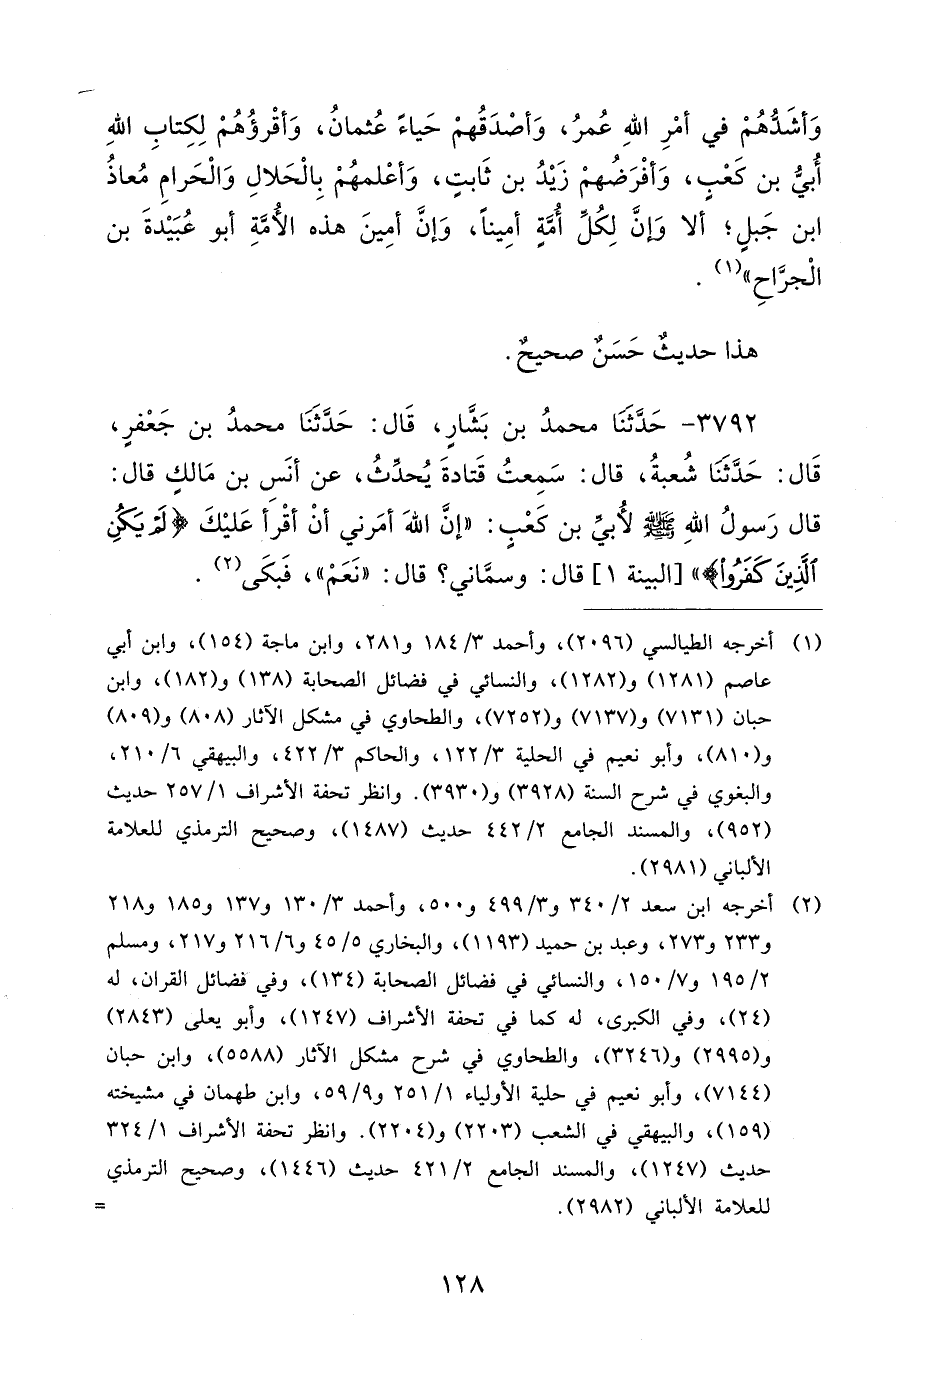 وَأشَدُّهُمْ في أمْرِ اللهِ عُمرُ، وَأصْدَقُهمْ حَياءً عُثمانُ، وَأقْرؤُهُمْ لِكِتابِ اللهِ
أُبيُّ بن كَعْبٍ، وَأفْرَضُهمْ زَيْدُ بن ثَابتٍ، وَأعْلمهُمْ بِالْحَلالِ وَالْحَرامِ مُعاذُ
ابن جَبلٍ؛ ألا وَإنَّ لِكُلِّ أُمَّةٍ أمِيناً، وَإنَّ أمِينَ هذه الأُمَّةِ أبو عُبَيْدةَ بن
الْجرَّاحِ»(١) .
هذا حديثٌ حَسَنٌ صحيحٌ.
٣٧٩٢- حَدَّثَنَا محمدُ بن بَشَّارٍ، قَال: حَدَّثَنَا محمدُ بن جَعْفرٍ،
قَال: حَدَّثَنَا شُعبةُ، قال: سَمِعتُ قَتادةَ يُحدِّثُ، عن أنَسِ بن مَالكٍ قال:
قال رَسولُ اللهِ ﷺ لأُبيِّ بن كَعْبٍ: «إنَّ اللهَ أمَرني أنْ أقْرَأ عَليْكَ ﴿لَمْ يَكُنِ
ٱلَّذِينَ كَفَرُواْ﴾» [البينة ١] قال: وسمَّاني؟ قال: «نَعَمْ»، فَبَكَى(٢) .
(١) أخرجه الطيالسي (٢٠٩٦)، وأحمد ٣/ ١٨٤ و٢٨١، وابن ماجة (١٥٤)، وابن أبي
عاصم (١٢٨١) و(١٢٨٢)، والنسائي في فضائل الصحابة (١٣٨) و(١٨٢)، وابن
حبان (٧١٣١) و(٧١٣٧) و(٧٢٥٢)، والطحاوي في مشكل الآثار (٨٠٨) و(٨٠٩)
و(٨١٠)، وأبو نعيم في الحلية ٣/ ١٢٢، والحاكم ٣/ ٤٢٢، والبيهقي ٦/ ٢١٠،
والبغوي في شرح السنة (٣٩٢٨) و(٣٩٣٠). وانظر تحفة الأشراف ١/ ٢٥٧ حديث
(٩٥٢)، والمسند الجامع ٢/ ٤٤٢ حديث (١٤٨٧)، وصحيح الترمذي للعلامة
الألباني (٢٩٨١).
(٢) أخرجه ابن سعد ٢/ ٣٤٠ و٣/ ٤٩٩ و٥٠٠، وأحمد ٣/ ١٣٠ و١٣٧ و١٨٥ و٢١٨
و٢٣٣ و٢٧٣، وعبد بن حميد (١١٩٣)، والبخاري ٥/ ٤٥ و٦/ ٢١٦ و٢١٧، ومسلم
٢/ ١٩٥ و٧/ ١٥٠، والنسائي في فضائل الصحابة (١٣٤)، وفي فضائل القران، له
(٢٤)، وفي الكبرى، له كما في تحفة الأشراف (١٢٤٧)، وأبو يعلى (٢٨٤٣)
و(٢٩٩٥) و(٣٢٤٦)، والطحاوي في شرح مشكل الآثار (٥٥٨٨)، وابن حبان
(٧١٤٤)، وأبو نعيم في حلية الأولياء ١/ ٢٥١ و٩/ ٥٩، وابن طهمان في مشيخته
(١٥٩)، والبيهقي في الشعب (٢٢٠٣) و(٢٢٠٤). وانظر تحفة الأشراف ١/ ٣٢٤
حديث (١٢٤٧)، والمسند الجامع ٢/ ٤٢١ حديث (١٤٤٦)، وصحيح الترمذي
للعلامة الألباني (٢٩٨٢). =
١٢٨